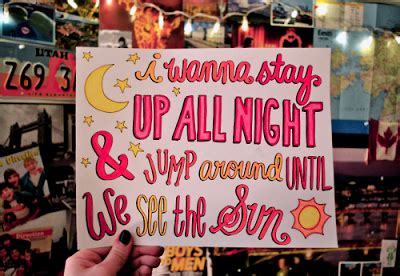 UTAH
269
i wanna stay
UP ALL NIGHT
& JUMP around UNTIL
We SEE the Sun
BOYS
MEN